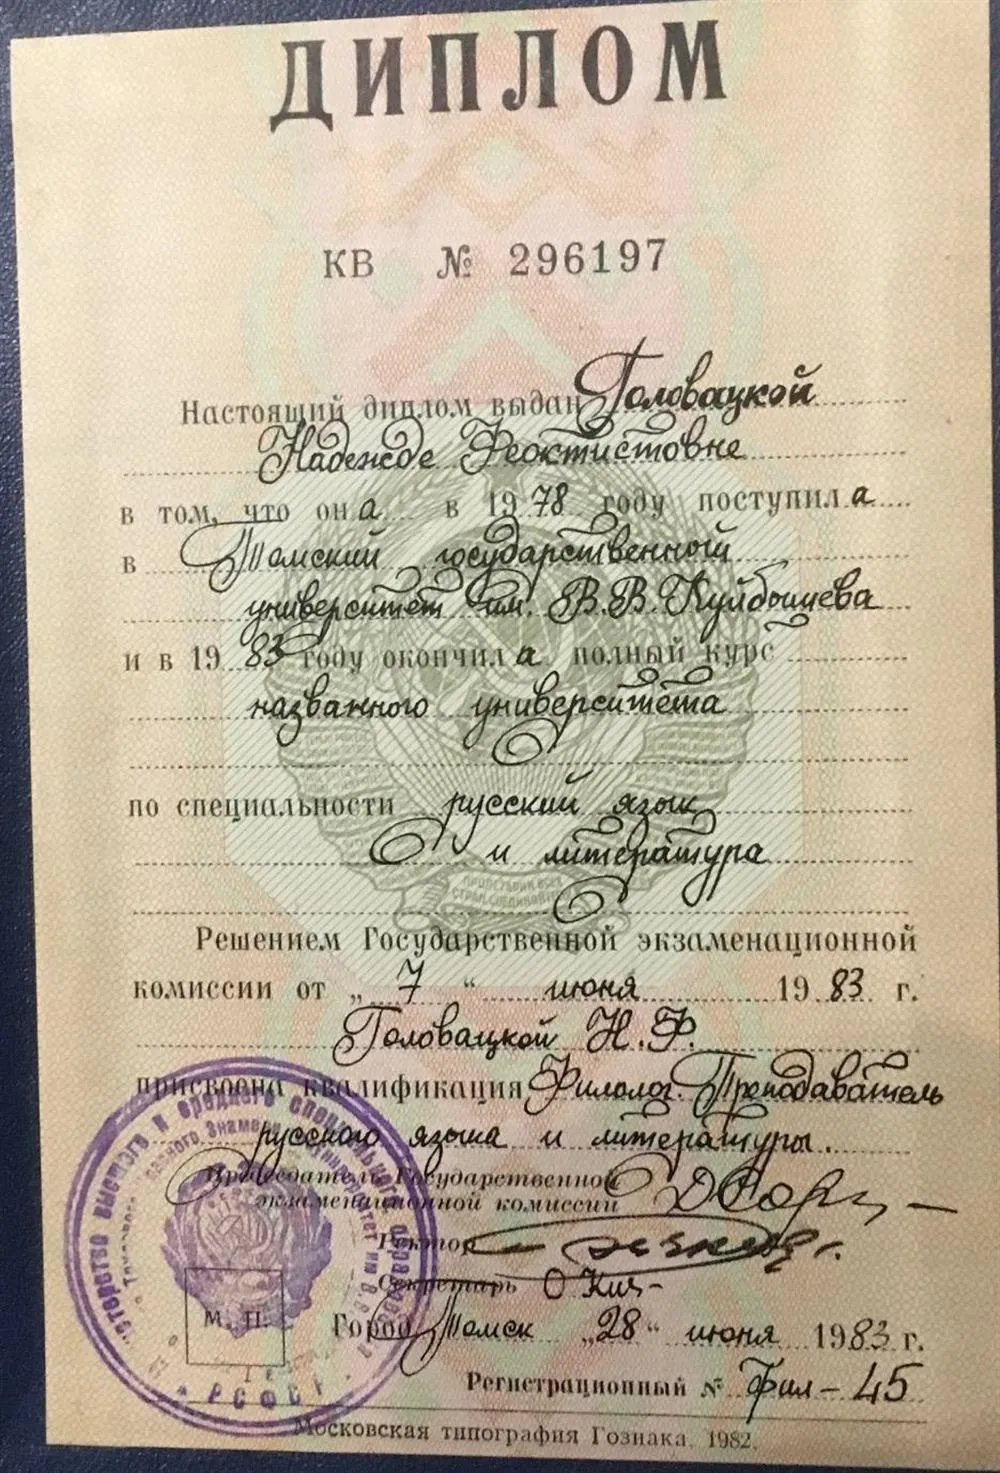 ДИПЛОМ
КВ № 296197
Настоящий диплом выдан Головацкой
Надежде Феоктистовне
в том, что она в 1978 году поступила
в Томский государственный
университет им. В.В. Куйбышева
и в 1983 году окончила полный курс
названного университета
по специальности русский язык
и литература
Решением Государственной экзаменационной
комиссии от „7“ июня 1983 г.
Головацкой Н.Ф.
присвоена квалификация Филолог. Преподаватель
русского языка и литературы.
Председатель Государственной
экзаменационной комиссии
Ректор
Секретарь
М. П.
Город Томск „28“ июня 1983 г.
Регистрационный № Фил-45
Московская типография Гознака. 1982.
РСФСР